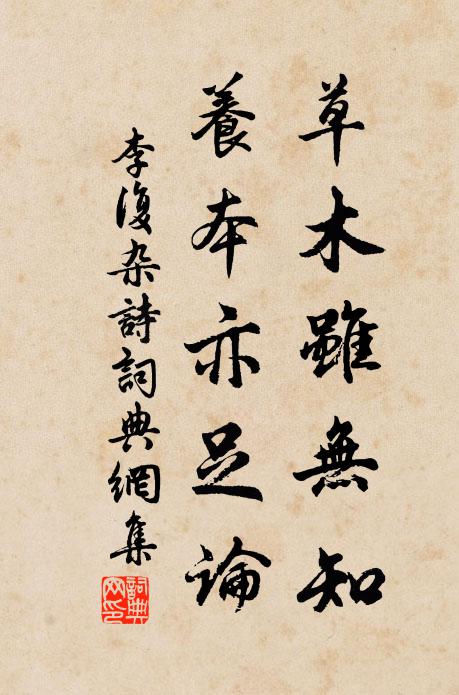 草木雖無知
養本亦足論
李復杂詩詞典網集
詞典網印